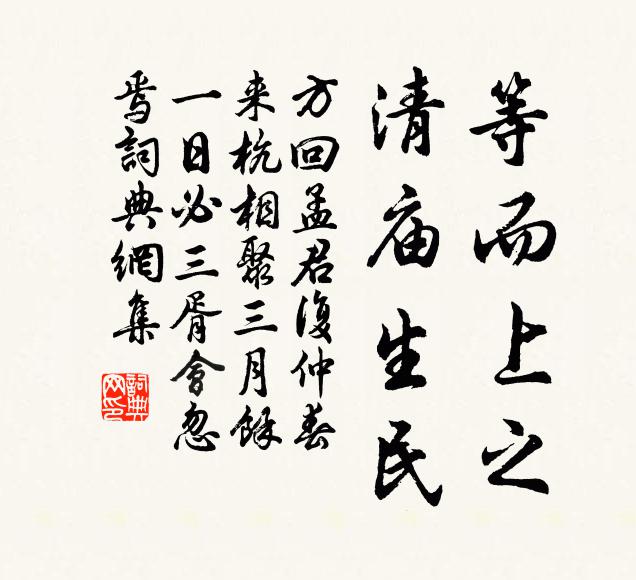 等而上之
清庙生民
方回孟君復仲春
来杭相聚三月餘
一日必三胥會忽
焉詞典網集
詞典网印